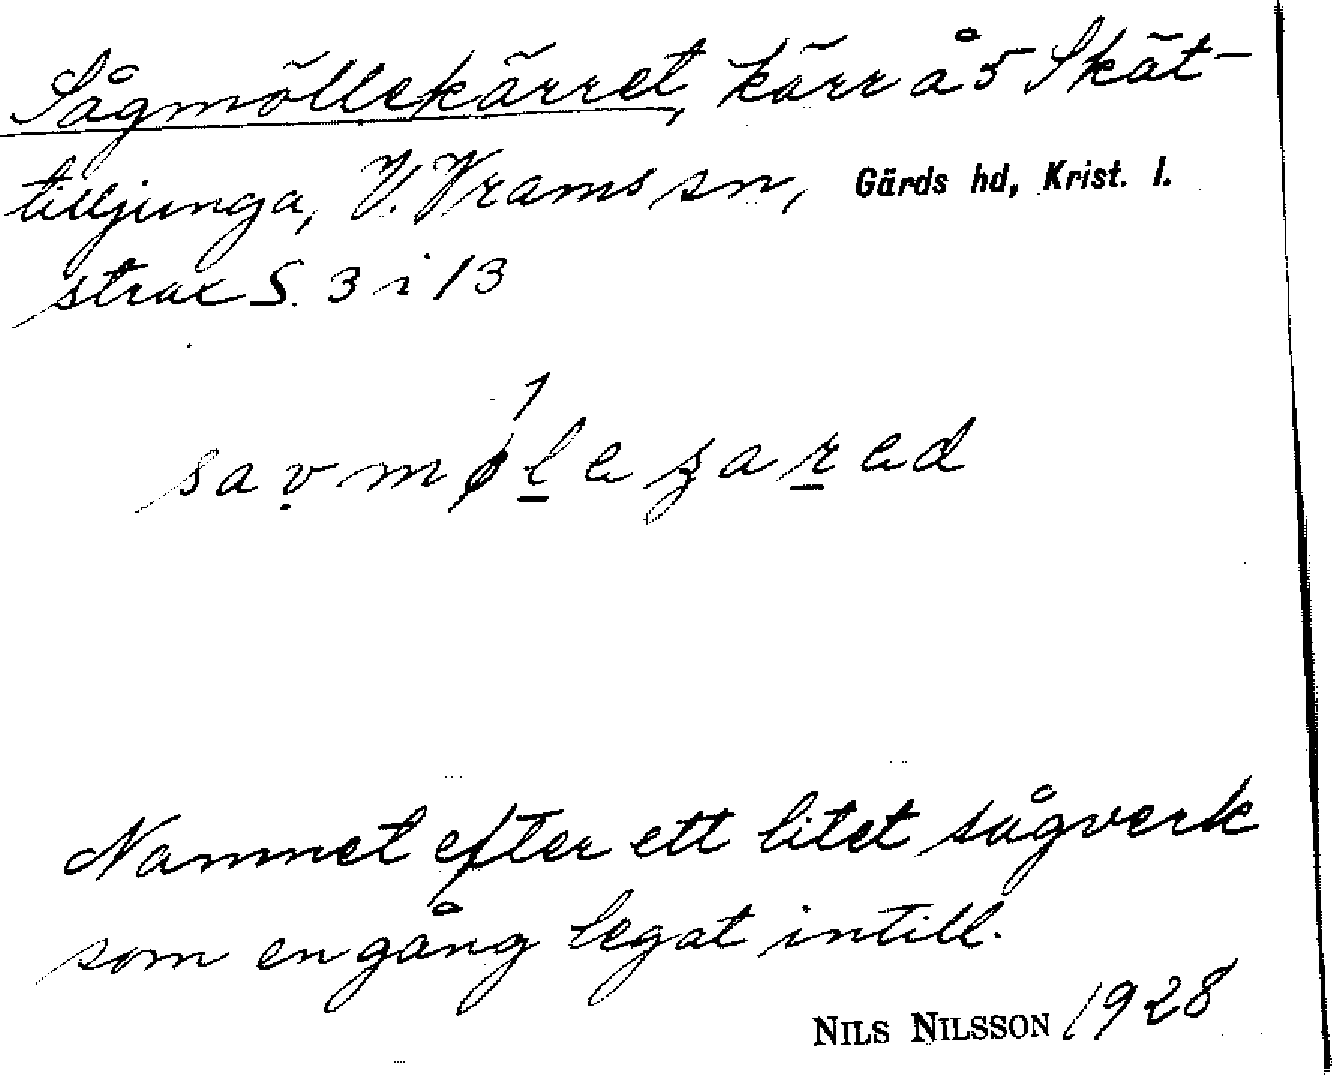 Sågmöllekärret, kärr å 5 Skät-
tilljunga, V. Vrams sn, Gärds hd, Krist. l.
strax S. 3 i 13
1
Namnet efter ett litet sågverk
som en gång legat intill.
NILS NILSSON 1928